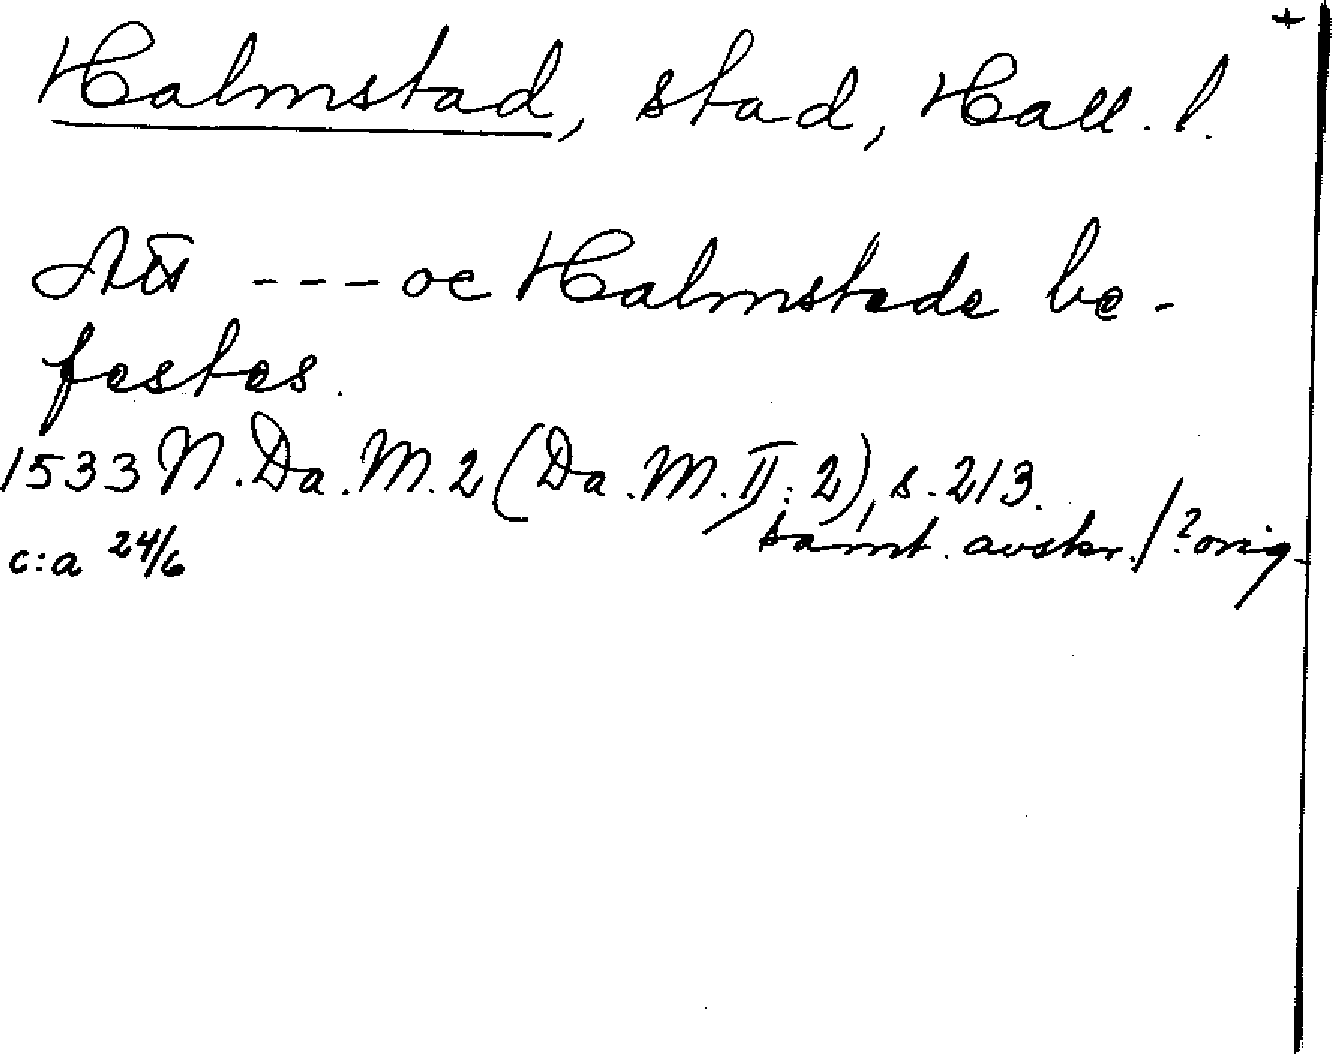 +
Halmstad, stad, Hall. l.
Att --- oc Halmstede be-
festes.
1533 N. Da. M. 2 (Da. M. II: 2), s. 213.
c:a 24/6 samt. avskr./?orig.